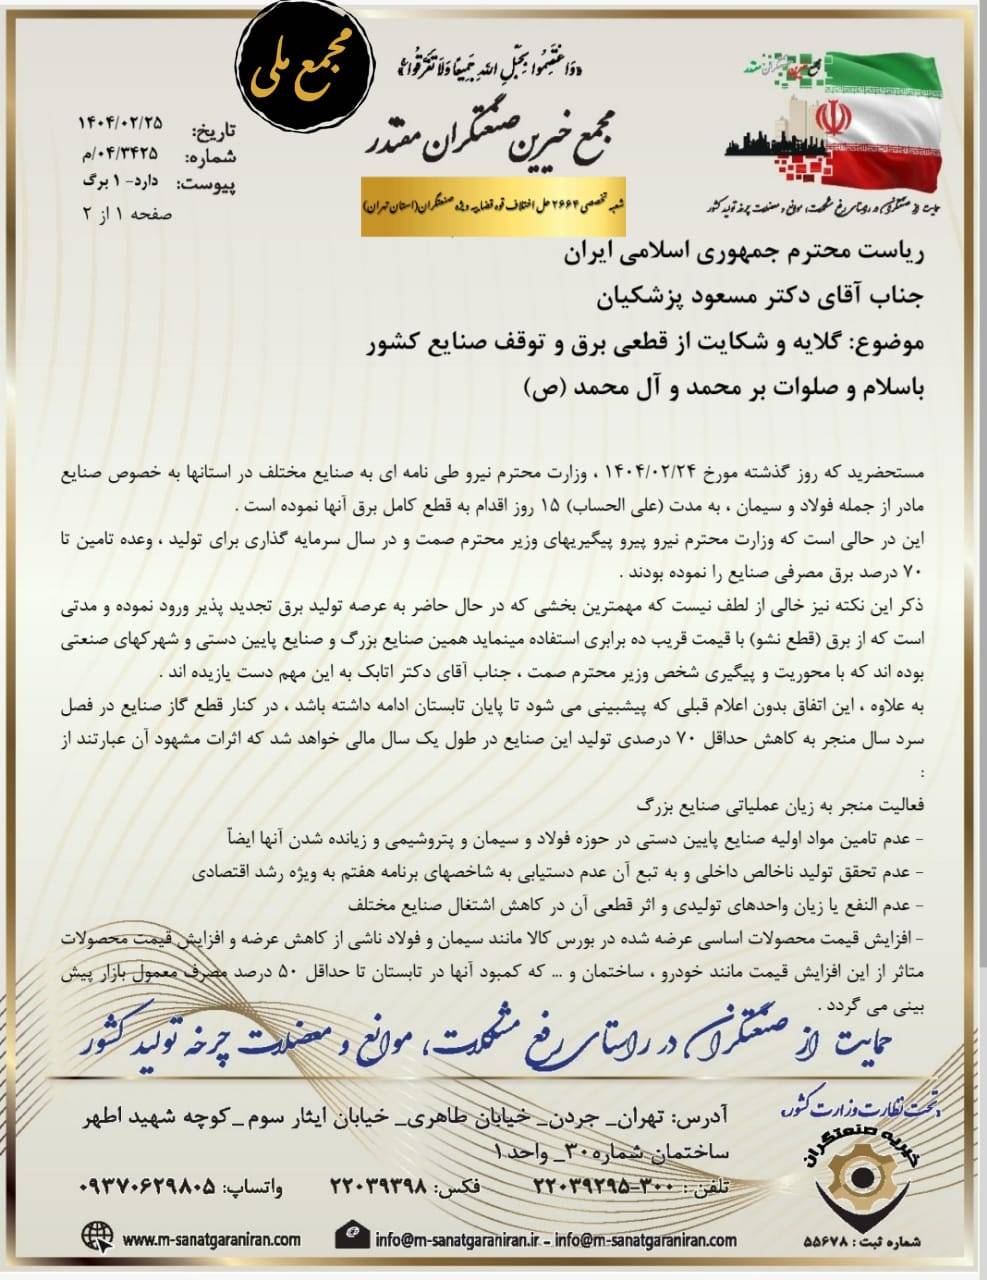 مجمع ملی
«وَاعْتَصِمُوا بِحَبْلِ اللَّهِ جَمِيعًا وَلَا تَفَرَّقُوا»
مجمع خیرین صنعتگران مقتدر
شعبه تخصصی ۲۶۶۴ حل اختلاف قوه قضاییه ویژه صنعتگران(استان تهران)
مجمع خیرین صنعتگران مقتدر
حمایت از صنعتگران در راستای رفع مشکلات، موانع و معضلات چرخه تولید کشور
تاریخ: ۱۴۰۴/۰۲/۲۵
شماره: ۰۴/۳۴۲۵/م
پیوست: دارد- ۱ برگ
صفحه ۱ از ۲
ریاست محترم جمهوری اسلامی ایران
جناب آقای دکتر مسعود پزشکیان
موضوع: گلایه و شکایت از قطعی برق و توقف صنایع کشور
باسلام و صلوات بر محمد و آل محمد (ص)
مستحضرید که روز گذشته مورخ ۱۴۰۴/۰۲/۲۴ ، وزارت محترم نیرو طی نامه ای به صنایع مختلف در استانها به خصوص صنایع
مادر از جمله فولاد و سیمان ، به مدت (علی الحساب) ۱۵ روز اقدام به قطع کامل برق آنها نموده است .
این در حالی است که وزارت محترم نیرو پیرو پیگیریهای وزیر محترم صمت و در سال سرمایه گذاری برای تولید ، وعده تامین تا
۷۰ درصد برق مصرفی صنایع را نموده بودند .
ذکر این نکته نیز خالی از لطف نیست که مهمترین بخشی که در حال حاضر به عرصه تولید برق تجدید پذیر ورود نموده و مدتی
است که از برق (قطع نشو) با قیمت قریب ده برابری استفاده مینماید همین صنایع بزرگ و صنایع پایین دستی و شهرکهای صنعتی
بوده اند که با محوریت و پیگیری شخص وزیر محترم صمت ، جناب آقای دکتر اتابک به این مهم دست یازیده اند .
به علاوه ، این اتفاق بدون اعلام قبلی که پیشبینی می شود تا پایان تابستان ادامه داشته باشد ، در کنار قطع گاز صنایع در فصل
سرد سال منجر به کاهش حداقل ۷۰ درصدی تولید این صنایع در طول یک سال مالی خواهد شد که اثرات مشهود آن عبارتند از
:
فعالیت منجر به زیان عملیاتی صنایع بزرگ
- عدم تامین مواد اولیه صنایع پایین دستی در حوزه فولاد و سیمان و پتروشیمی و زیانده شدن آنها ایضاً
- عدم تحقق تولید ناخالص داخلی و به تبع آن عدم دستیابی به شاخصهای برنامه هفتم به ویژه رشد اقتصادی
- عدم النفع یا زیان واحدهای تولیدی و اثر قطعی آن در کاهش اشتغال صنایع مختلف
- افزایش قیمت محصولات اساسی عرضه شده در بورس کالا مانند سیمان و فولاد ناشی از کاهش عرضه و افزایش قیمت محصولات
متاثر از این افزایش قیمت مانند خودرو ، ساختمان و ... که کمبود آنها در تابستان تا حداقل ۵۰ درصد مصرف معمول بازار پیش
بینی می گردد .
حمایت از صنعتگران در راستای رفع مشکلات، موانع و معضلات چرخه تولید کشور
«تحت نظارت وزارت کشور»
خیریه صنعتگران
شماره ثبت : ۵۵۶۷۸
آدرس: تهران_ جردن_ خیابان طاهری_ خیابان ایثار سوم_کوچه شهید اطهر
ساختمان شماره۳۰_ واحد۱
تلفن : ۳۰۰-۲۲۰۳۹۲۹۵ فکس: ۲۲۰۳۹۳۹۸ واتساپ: ۰۹۳۷۰۶۲۹۸۰۵
www.m-sanatgaraniran.com info@m-sanatgaraniran.ir – info@m-sanatgaraniran.com